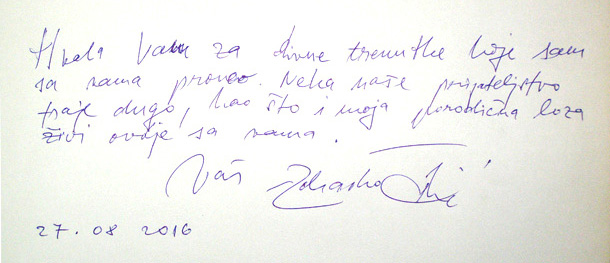 Hvala Vam za divne trenutke koje sam
sa vama proveo. Neka naše prijateljstvo
traje dugo, kao što i moja porodična loza
živi ovdje sa vama.
Vaš Zdravko
27.08 2016